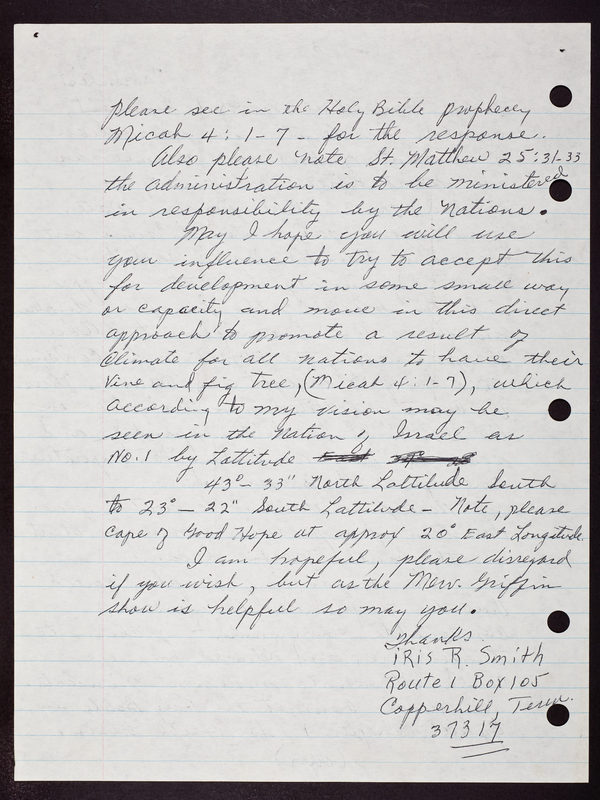 please see in the Holy Bible prophecy
Micah 4: 1-7 - for the response.
Also please note St. Matthew 25:31-33
the administration is to be ministered
in responsibility by the Nations.
May I hope you will use
your influence to try to accept this
for development in some small way
or capacity and move in this direct
approach to promote a result of
Climate for all nations to have their
Vine and fig tree, (Micah 4:1-7), which
according to my vision may be
seen in the Nation of Israel as
No. 1 by Lattitude
43° - 33" North Lattitude South
to 23° - 22" South Lattitude - Note, please
Cape of Good Hope at approx 20° East Longitude.
I am hopeful, please disregard
if you wish, but as the Merv. Griffin
show is helpful so may you.
Thanks.
iRis R. Smith
Route 1 Box 105
Copperhill, Tenn.
37317